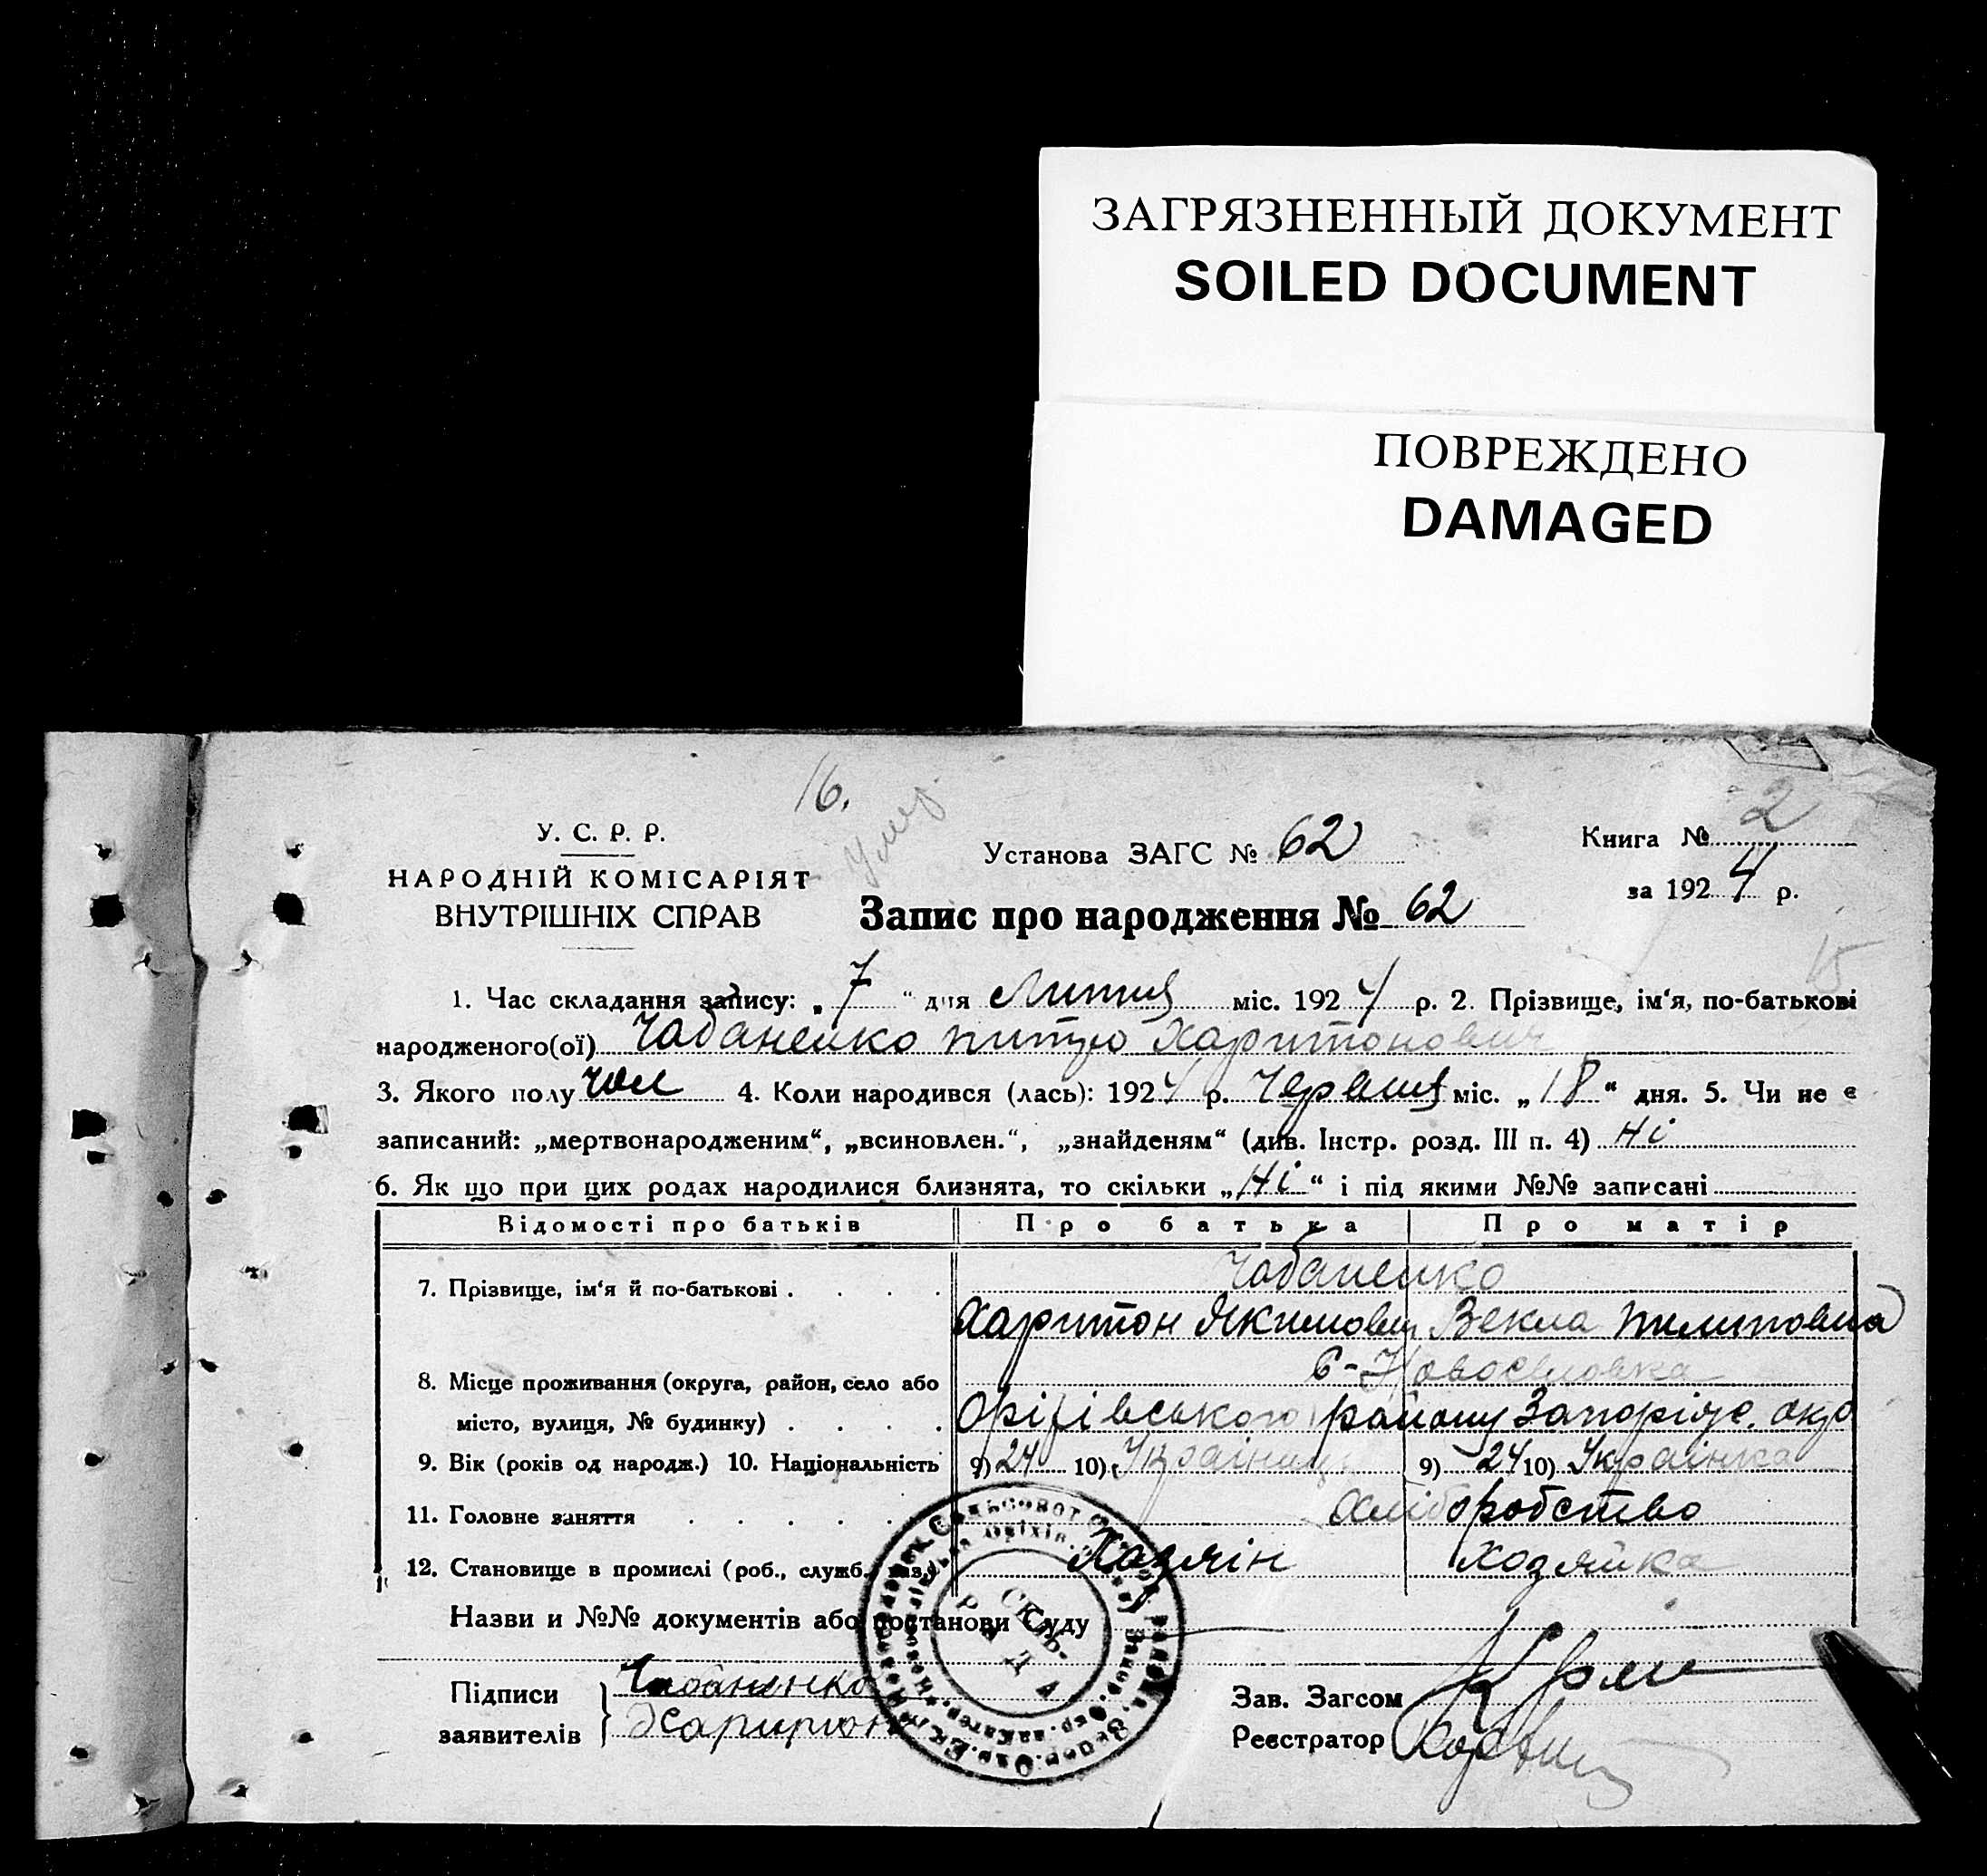 ЗАГРЯЗНЕННЫЙ ДОКУМЕНТ
SOILED DOCUMENT
ПОВРЕЖДЕНО
DAMAGED
16.
Умер.
У. С. Р. Р.
НАРОДНІЙ КОМІСАРІЯТ
ВНУТРІШНІХ СПРАВ
Установа ЗАГС № 62
Книга № 2
за 1924 р.
Запис про народження № 62
15
1. Час складання запису: „ 7 “ дня Липня міс. 1924 р. 2. Прізвище, ім‘я, по-батькові
народженого(ої) Чабаненко Харитонович
3. Якого полу Чол 4. Коли народився (лась): 1924 р. Червня міс. „ 18 “ дня. 5. Чи не є
записаний: „мертвонародженим“, „всиновлен.“, „знайденям“ (див. Інстр. розд. III п. 4) Ні
6. Як що при цих родах народилися близнята, то скільки „Ні“ і під якими №№ записані
Відомості про батьків Про батька Про матір
7. Прізвище, ім‘я й по-батькові . . . . Чабаненко
Харитон Якимович Векла Пилиповна
с-Новоселовка
8. Місце проживання (округа, район, село або
місто, вулиця, № будинку) . . . . Оріхівського району Запоріж. окр
9. Вік (років од народж.) 10. Національність 9) 24 10) Українець 9) 24 10) Українка
11. Головне заняття . . . . . Хліборобство
12. Становище в промислі (роб., служб., хаз.) Хазяін Хозяйка
Назви и №№ документів або постанови Суду
СІЛЬ-
РАДА
Підписи
заявителів
Чабаненко
Харитон
Зав. Загсом
Реєстратор